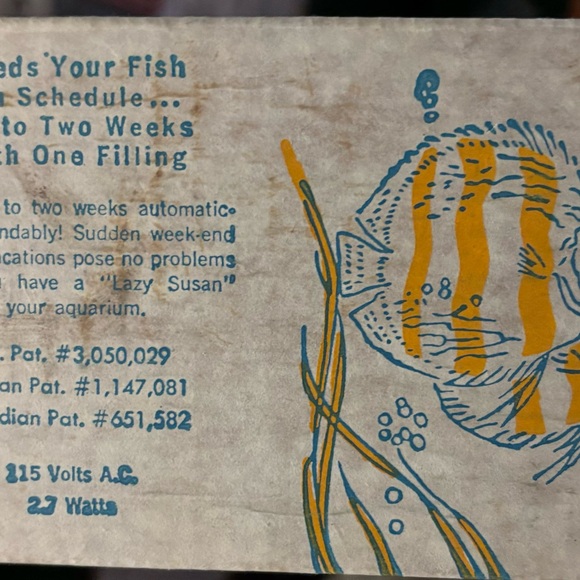 eds Your Fish
Schedule...
to Two Weeks
h One Filling
to two weeks automatic-
ndably! Sudden week-end
cations pose no problems
have a "Lazy Susan"
your aquarium.
. Pat. #3,050,029
an Pat. #1,147,081
dian Pat. #651,582
115 Volts A.C.
2.7 Watts